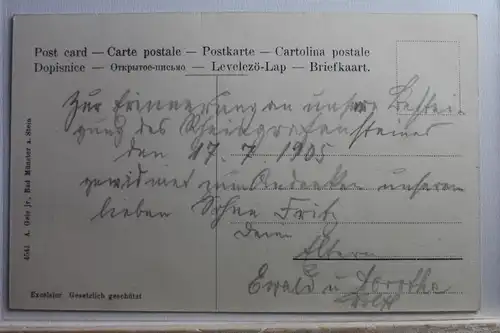 Post card — Carte postale — Postkarte — Cartolina postale
Dopisnice — Открытое-письмо — Levelező-Lap — Briefkaart.
Zur Erinnerung an unsere Bestei-
gung des Rheingrafensteines
den 17. 7 1905
gewidmet zum Andenken unserem
lieben Sohne Fritz
Eltern
Ewald u Dorothe
4541 A. Gole jr., Bad Münster a. Stein
Excelsior Gesetzlich geschützt